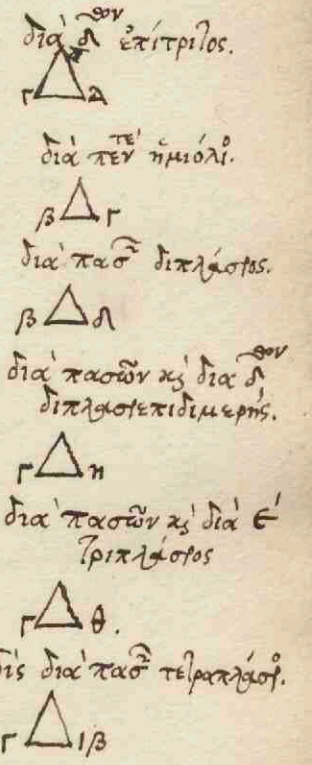 διὰ δ^ον ἐπίτριτος.
Γ δ
διὰ πεντε' ἡμιόλι^ο.
β Γ
διὰ πασ^ῶν διπλάσιος.
β δ
διὰ πασῶν κ διὰ δ^ον
διπλασιεπιδιμερής.
Γ η
διὰ πασῶν κ διὰ ε'
τριπλάσιος
Γ θ.
δὶς διὰ πασ^ῶν τετραπλάσι^ο.
Γ ιβ